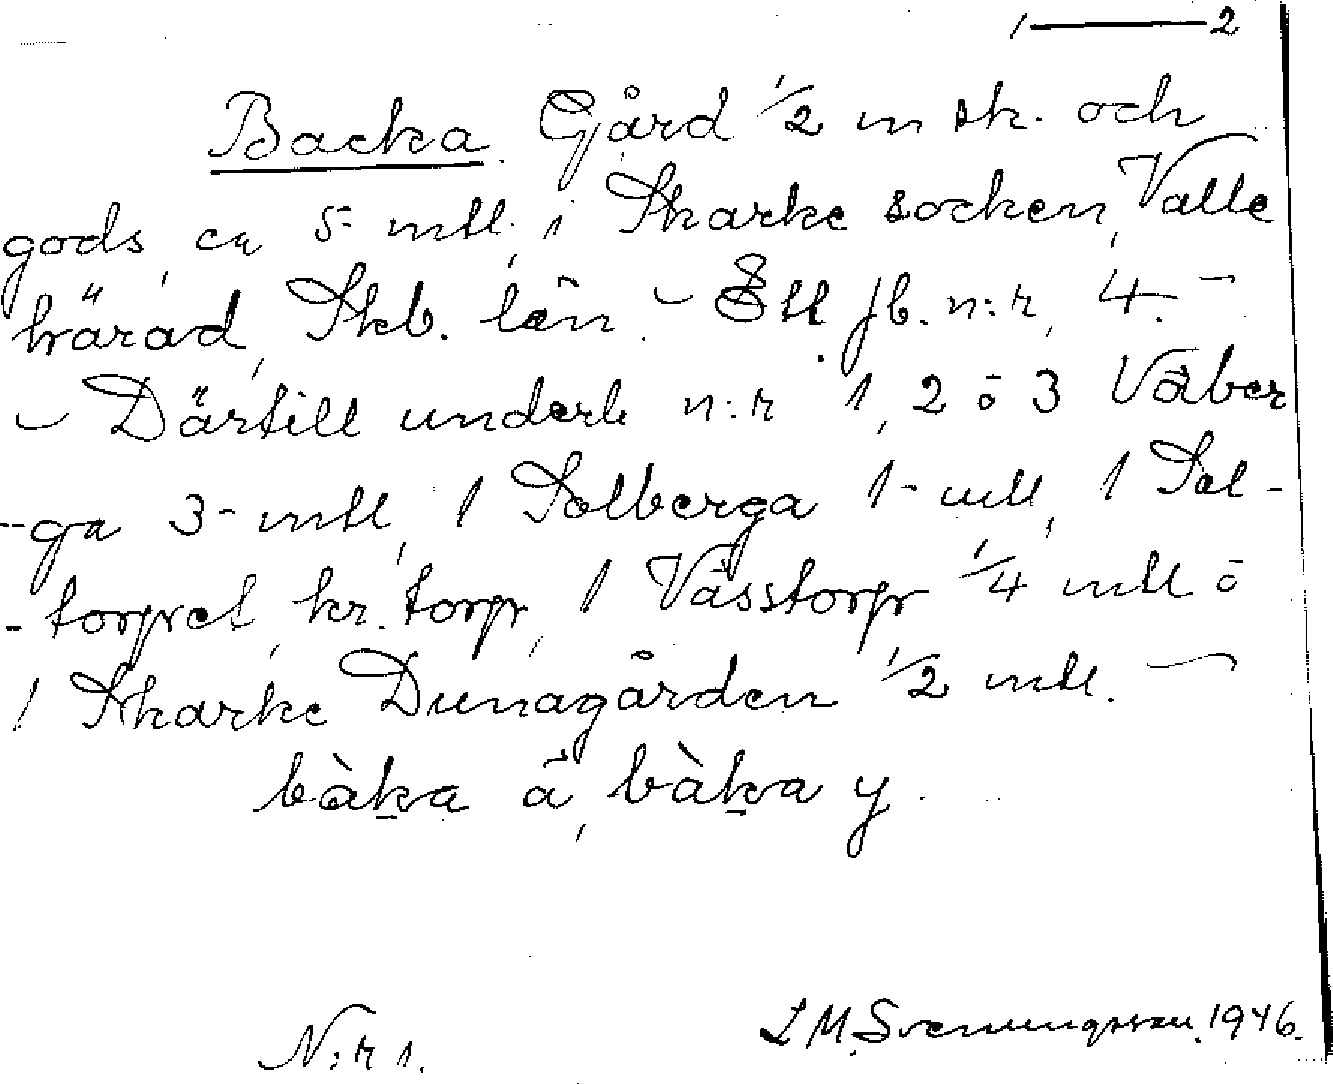 1 — 2
Backa. Gård 1/2 m sk. och
gods, ca 5- mtl. i Skarke socken, Valle
härad, Skb. län. - Ett jb. n:r, 4. -
- Därtill underl n:r 1, 2 o 3 Våber
-ga 3- mtl, 1 Solberga 1- mtl, 1 Sol-
-torpet, kr. torp, 1 Västorp 1/4 mtl o
1 Skarke Dunagården 1/2 mtl. -
bàka å, bàka y.
N:r 1.
L M. Svenungsson. 1946.